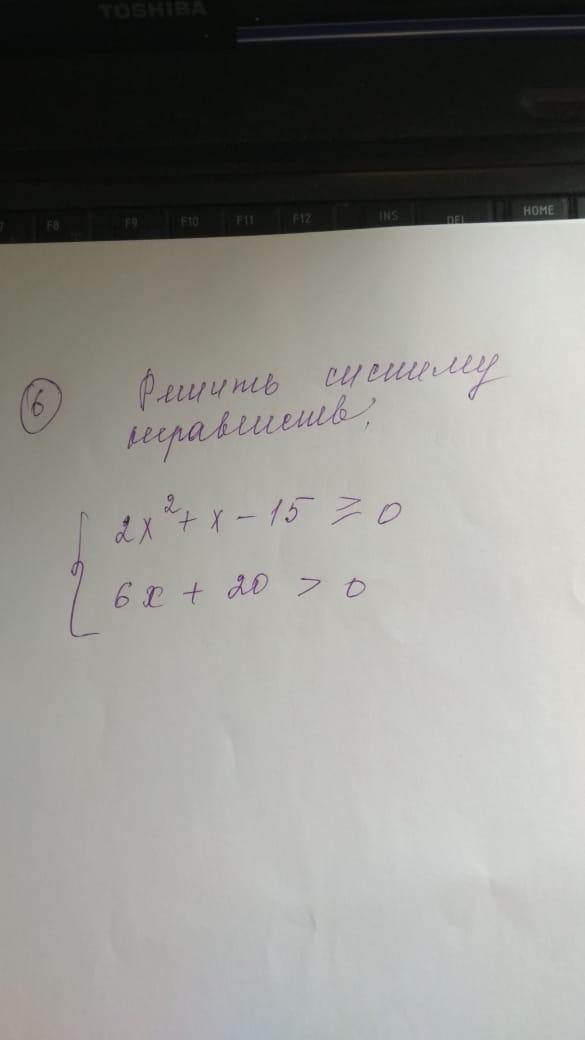 TOSHIBA
7 F8 F9 F10 F11 F12 INS DEL HOME
6 Решить систему
неравенств:
2x² + x - 15 ≥ 0
6x + 20 > 0